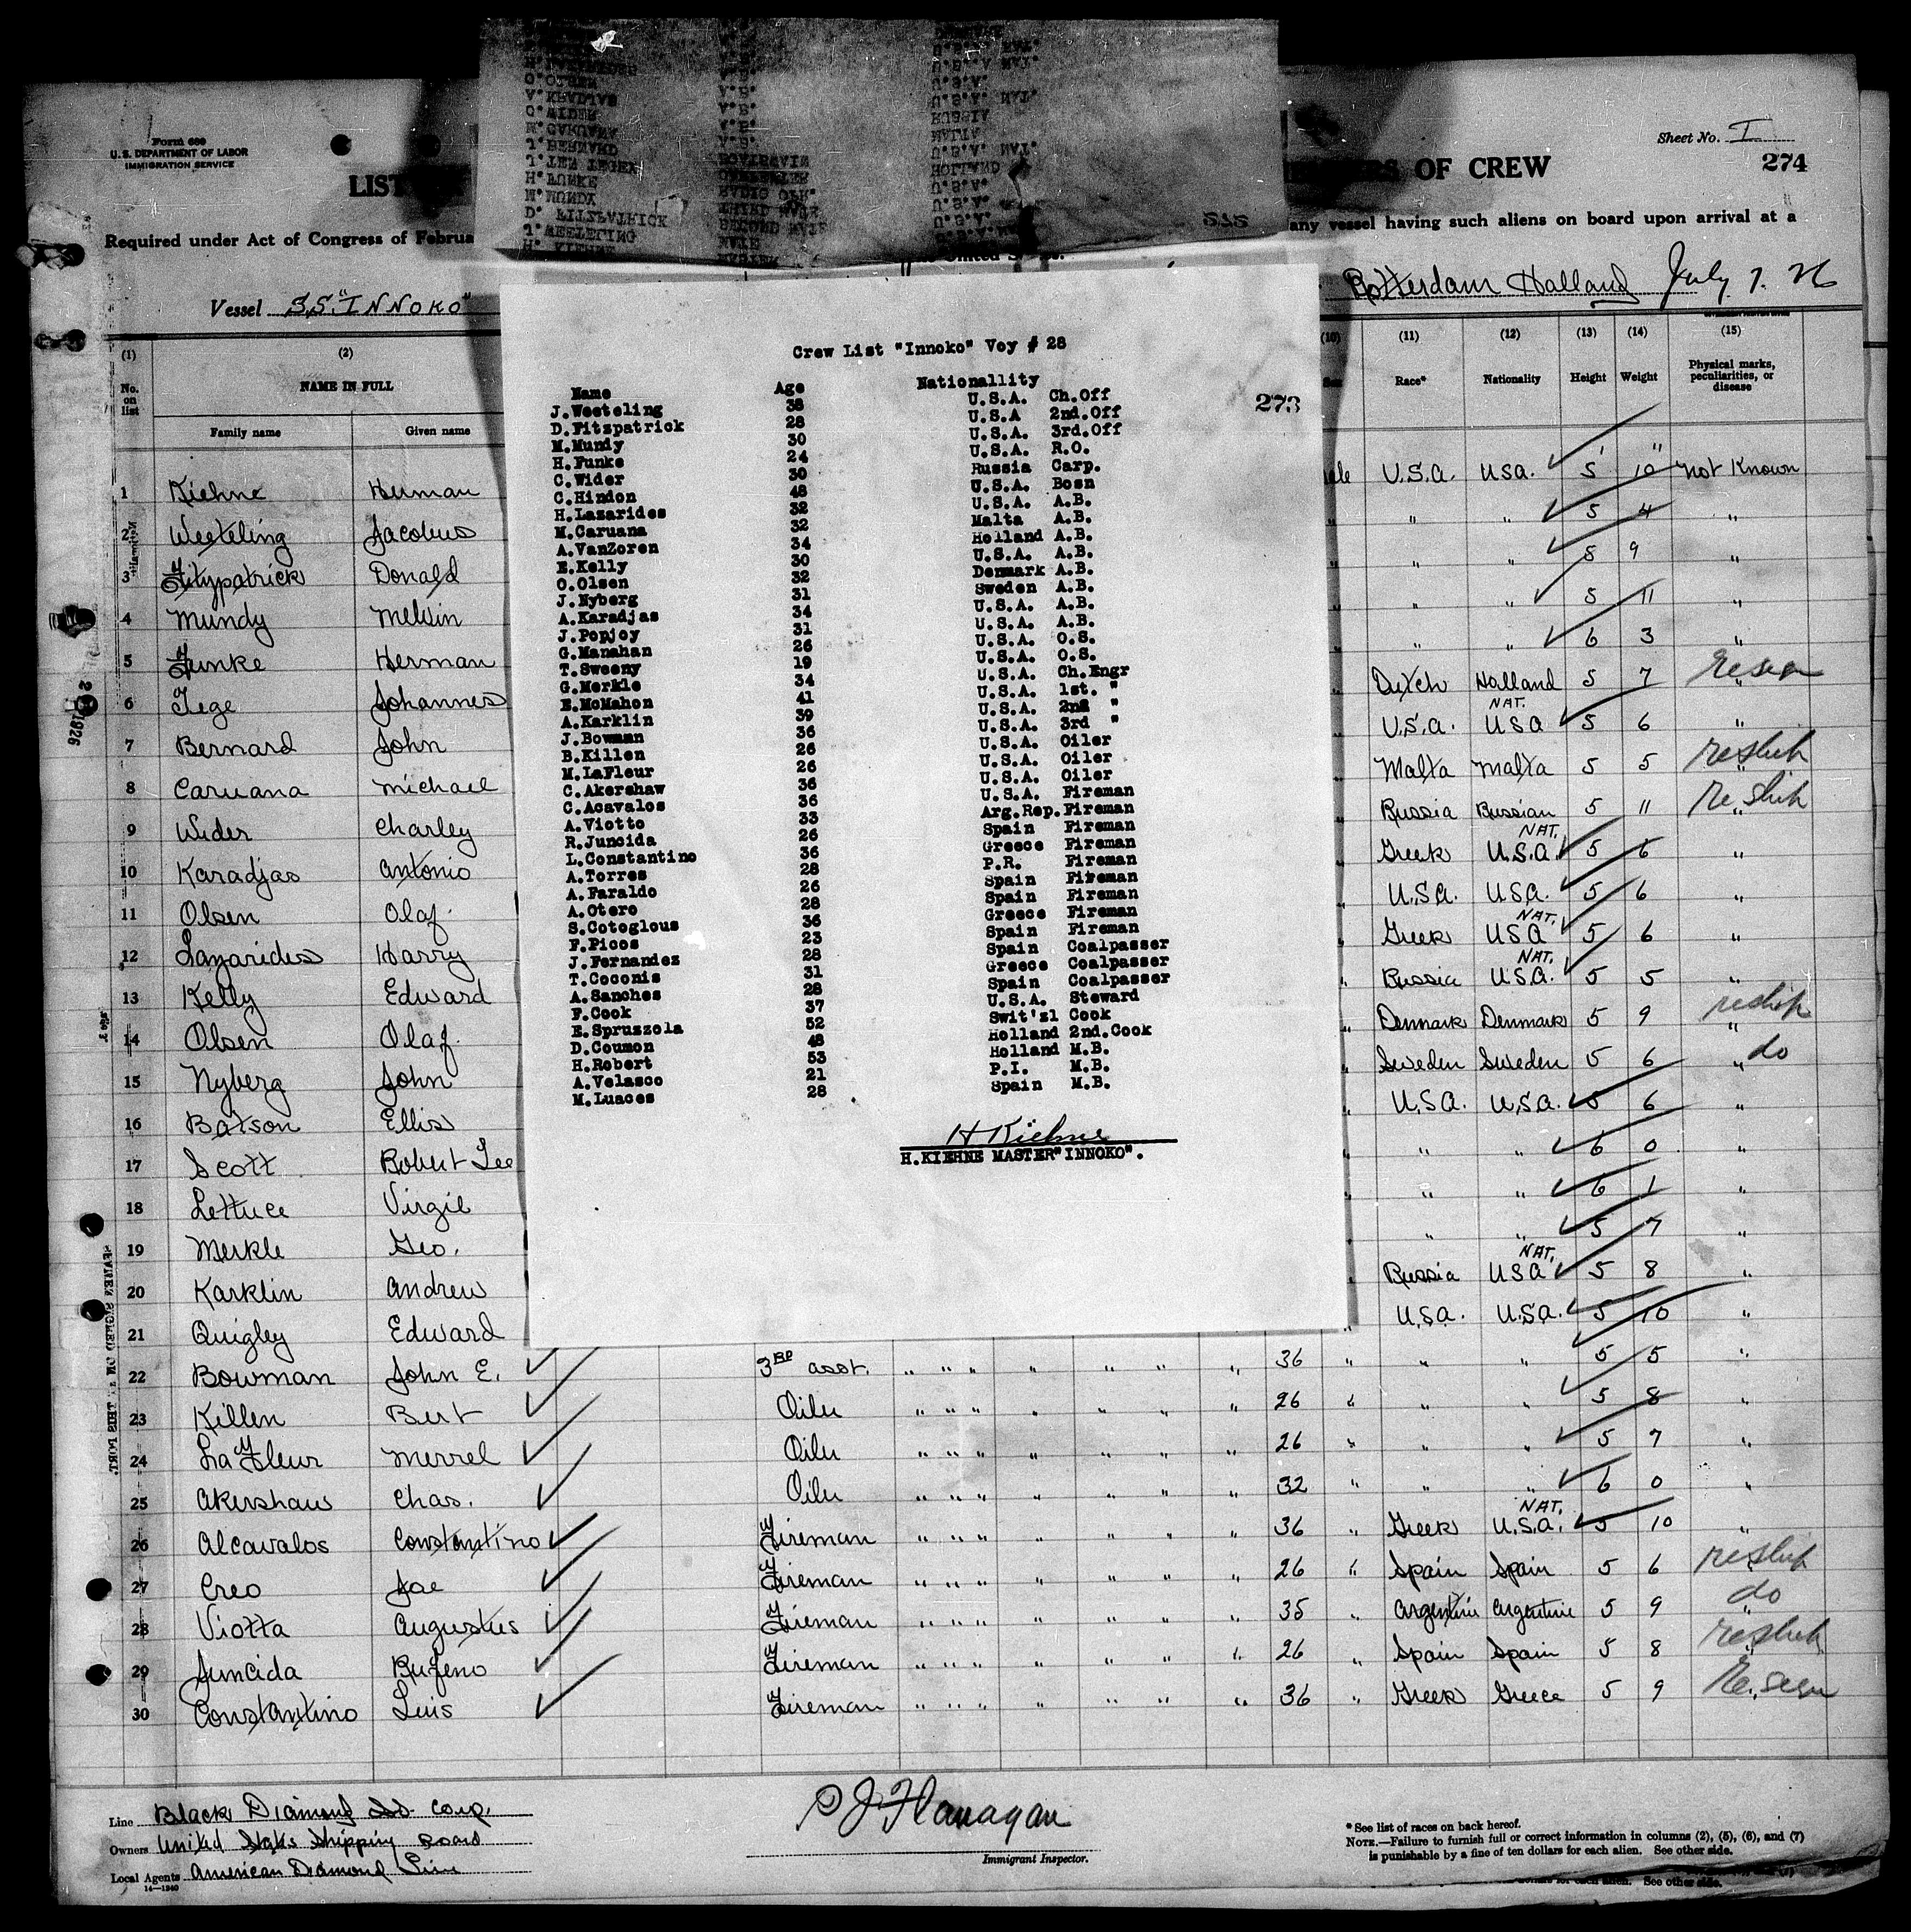 Form 689
U.S. DEPARTMENT OF LABOR
IMMIGRATION SERVICE
Sheet No. I
274
LIST
OF CREW
Required under Act of Congress of Februa
any vessel having such aliens on board upon arrival at a
Vessel S.S. "INNOKO"
Rotterdam Holland July 7. 26
(1) (2) (10) (11) (12) (13) (14) (15)
No. on list
NAME IN FULL
Family name Given name
Race* Nationality Height Weight Physical marks, peculiarities, or disease
Crew List "Innoko" Voy # 28
273
Name Age Nationallity
J.Weeteling 38 U.S.A. Ch.Off
D.Fitzpatrick 28 U.S.A 2nd.Off
M.Mundy 30 U.S.A. 3rd.Off
H.Funke 24 U.S.A. R.O.
C.Wider 30 Russia Carp.
C.Hindon 48 U.S.A. Bosn
H.Lazarides 32 U.S.A. A.B.
M.Caruana 32 Malta A.B.
A.VanZoren 34 Holland A.B.
E.Kelly 30 U.S.A. A.B.
O.Olsen 32 Denmark A.B.
J.Nyberg 31 Sweden A.B.
A.Karadjas 34 U.S.A. A.B.
J.Popjoy 31 U.S.A. A.B.
G.Manahan 26 U.S.A. O.S.
T.Sweeny 19 U.S.A. O.S.
G.Merkle 34 U.S.A. Ch.Engr
E.McMahon 41 U.S.A. 1st. "
A.Karklin 39 U.S.A. 2nd "
J.Bowman 36 U.S.A. 3rd "
B.Killen 26 U.S.A. Oiler
M.LaFleur 26 U.S.A. Oiler
C.Akershaw 36 U.S.A. Oiler
C.Acavalos 36 U.S.A. Fireman
A.Viotto 33 Arg.Rep. Fireman
R.Juncida 26 Spain Fireman
L.Constantino 36 Greece Fireman
A.Torres 28 P.R. Fireman
A.Faraldo 26 Spain Fireman
A.Otero 28 Spain Fireman
S.Cotoglous 36 Greece Fireman
F.Picos 23 Spain Fireman
J.Fernandez 28 Spain Coalpasser
T.Coconis 31 Greece Coalpasser
A.Sanches 28 Spain Coalpasser
F.Cook 37 U.S.A. Steward
E.Spruzzola 52 Swit'zl Cook
D.Coumon 48 Holland 2nd.Cook
H.Robert 53 Holland M.B.
A.Velasco 21 P.I. M.B.
M.Luaces 28 Spain M.B.
H Kiehne
H.KIEHNE MASTER"INNOKO".
1 Kiehne Herman ale U.S.A. USA. 5' 10" not Known
2 Weeteling Jacobus " " 5 4 "
3 Fitzpatrick Donald " " 5 9 "
4 Mundy Melvin " " 5 11 "
5 Funke Herman " " 6 3 "
6 Tege Johannes Dutch Holland 5 7 "
7 Bernard John U.S.A. NAT. USA 5 6 "
8 Caruana Michael Malta Malta 5 5 reship
9 Wider Charley Russia Russian 5 11 Reship
10 Karadjas Antonio Greek NAT. U.S.A. 5 6 "
11 Olsen Olaf. U.S.A. USA. 5 6 "
12 Lazarides Harry Greek NAT. USA 5 6 "
13 Kelly Edward Russia NAT. U.S.A. 5 5 "
14 Olsen Olaf. Denmark Denmark 5 9 reship
15 Nyberg John Sweden Sweden 5 6 " do
16 Batson Ellis U.S.A. U.S.A. 5 6 "
17 Scott Robert Lee " " 6 0 "
18 Lettuce Virgil " " 6 1 "
19 Merkle Geo. " " 5 7 "
20 Karklin Andrew Russia NAT. USA 5 8 "
21 Quigley Edward U.S.A. U.S.A. 5 10 "
22 Bowman John E. 3RD asst. " " " " " " " 36 " " " 5 5 "
23 Killen Bert Oiler " " " " " " " 26 " " " 5 8 "
24 LaFleur Merrel Oiler " " " " " " " 26 " " " 5 7 "
25 Akershaw Chas. Oiler " " " " " " " 32 " " " 6 0 "
26 Alcavalos Constantino Fireman " " " " " " " 36 " Greek NAT. U.S.A. 5 10 "
27 Creo Joe Fireman " " " " " " " 26 " Spain Spain 5 6 reship
28 Viotta Augustus Fireman " " " " " " " 35 " Argentine Argentine 5 9 " do
29 Juncida Rufeno Fireman " " " " " " " 26 " Spain Spain 5 8 reship
30 Constantino Luis Fireman " " " " " " " 36 " Greek Greece 5 9
Line Black Diamond SS. Corp.
Owners United States Shipping Board
Local Agents American Diamond Line
14—1240
P J Flanagan
Immigrant Inspector.
* See list of races on back hereof.
NOTE.—Failure to furnish full or correct information in columns (2), (5), (6), and (7)
is punishable by a fine of ten dollars for each alien. See other side.
See other side.